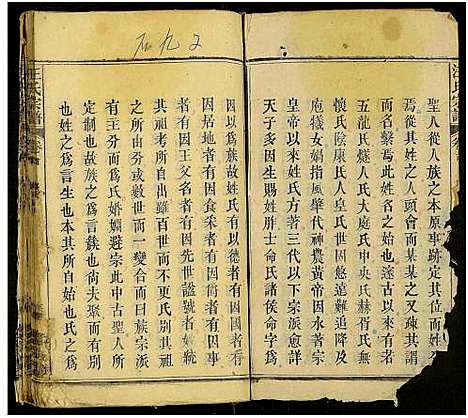 汪氏宗譜
聖人從人族之本原事跡定其位而姓分
焉從其姓之人頭會而某某之又或稱其謂
之本繫焉此姓名之
五龍氏燧人氏大庭氏中央氏赫胥氏無
懷氏陰康氏人皇氏世因悠遠難明及
庖犧女媧指風肇代神農黃帝因水著宗
三皇以下以來姓氏方著三代以下宗派愈詳
天子多因生賜姓胙土命氏諸侯命字為
石九子
汪氏宗譜
氏因是有族故姓氏有以德者有因國者有
因居地者有因食采者有因先世謚號者有
因祖者有因王父名者有因
百世而下雖百世而不更氏別其祖
其祖考所自出
所由分或數世而一變合而曰族宗派
至王分而為氏婚姻避宗此中古聖人所
定制也故族之為言錢也尚夫聚而有
也姓之為言生也本其所自始也氏之為